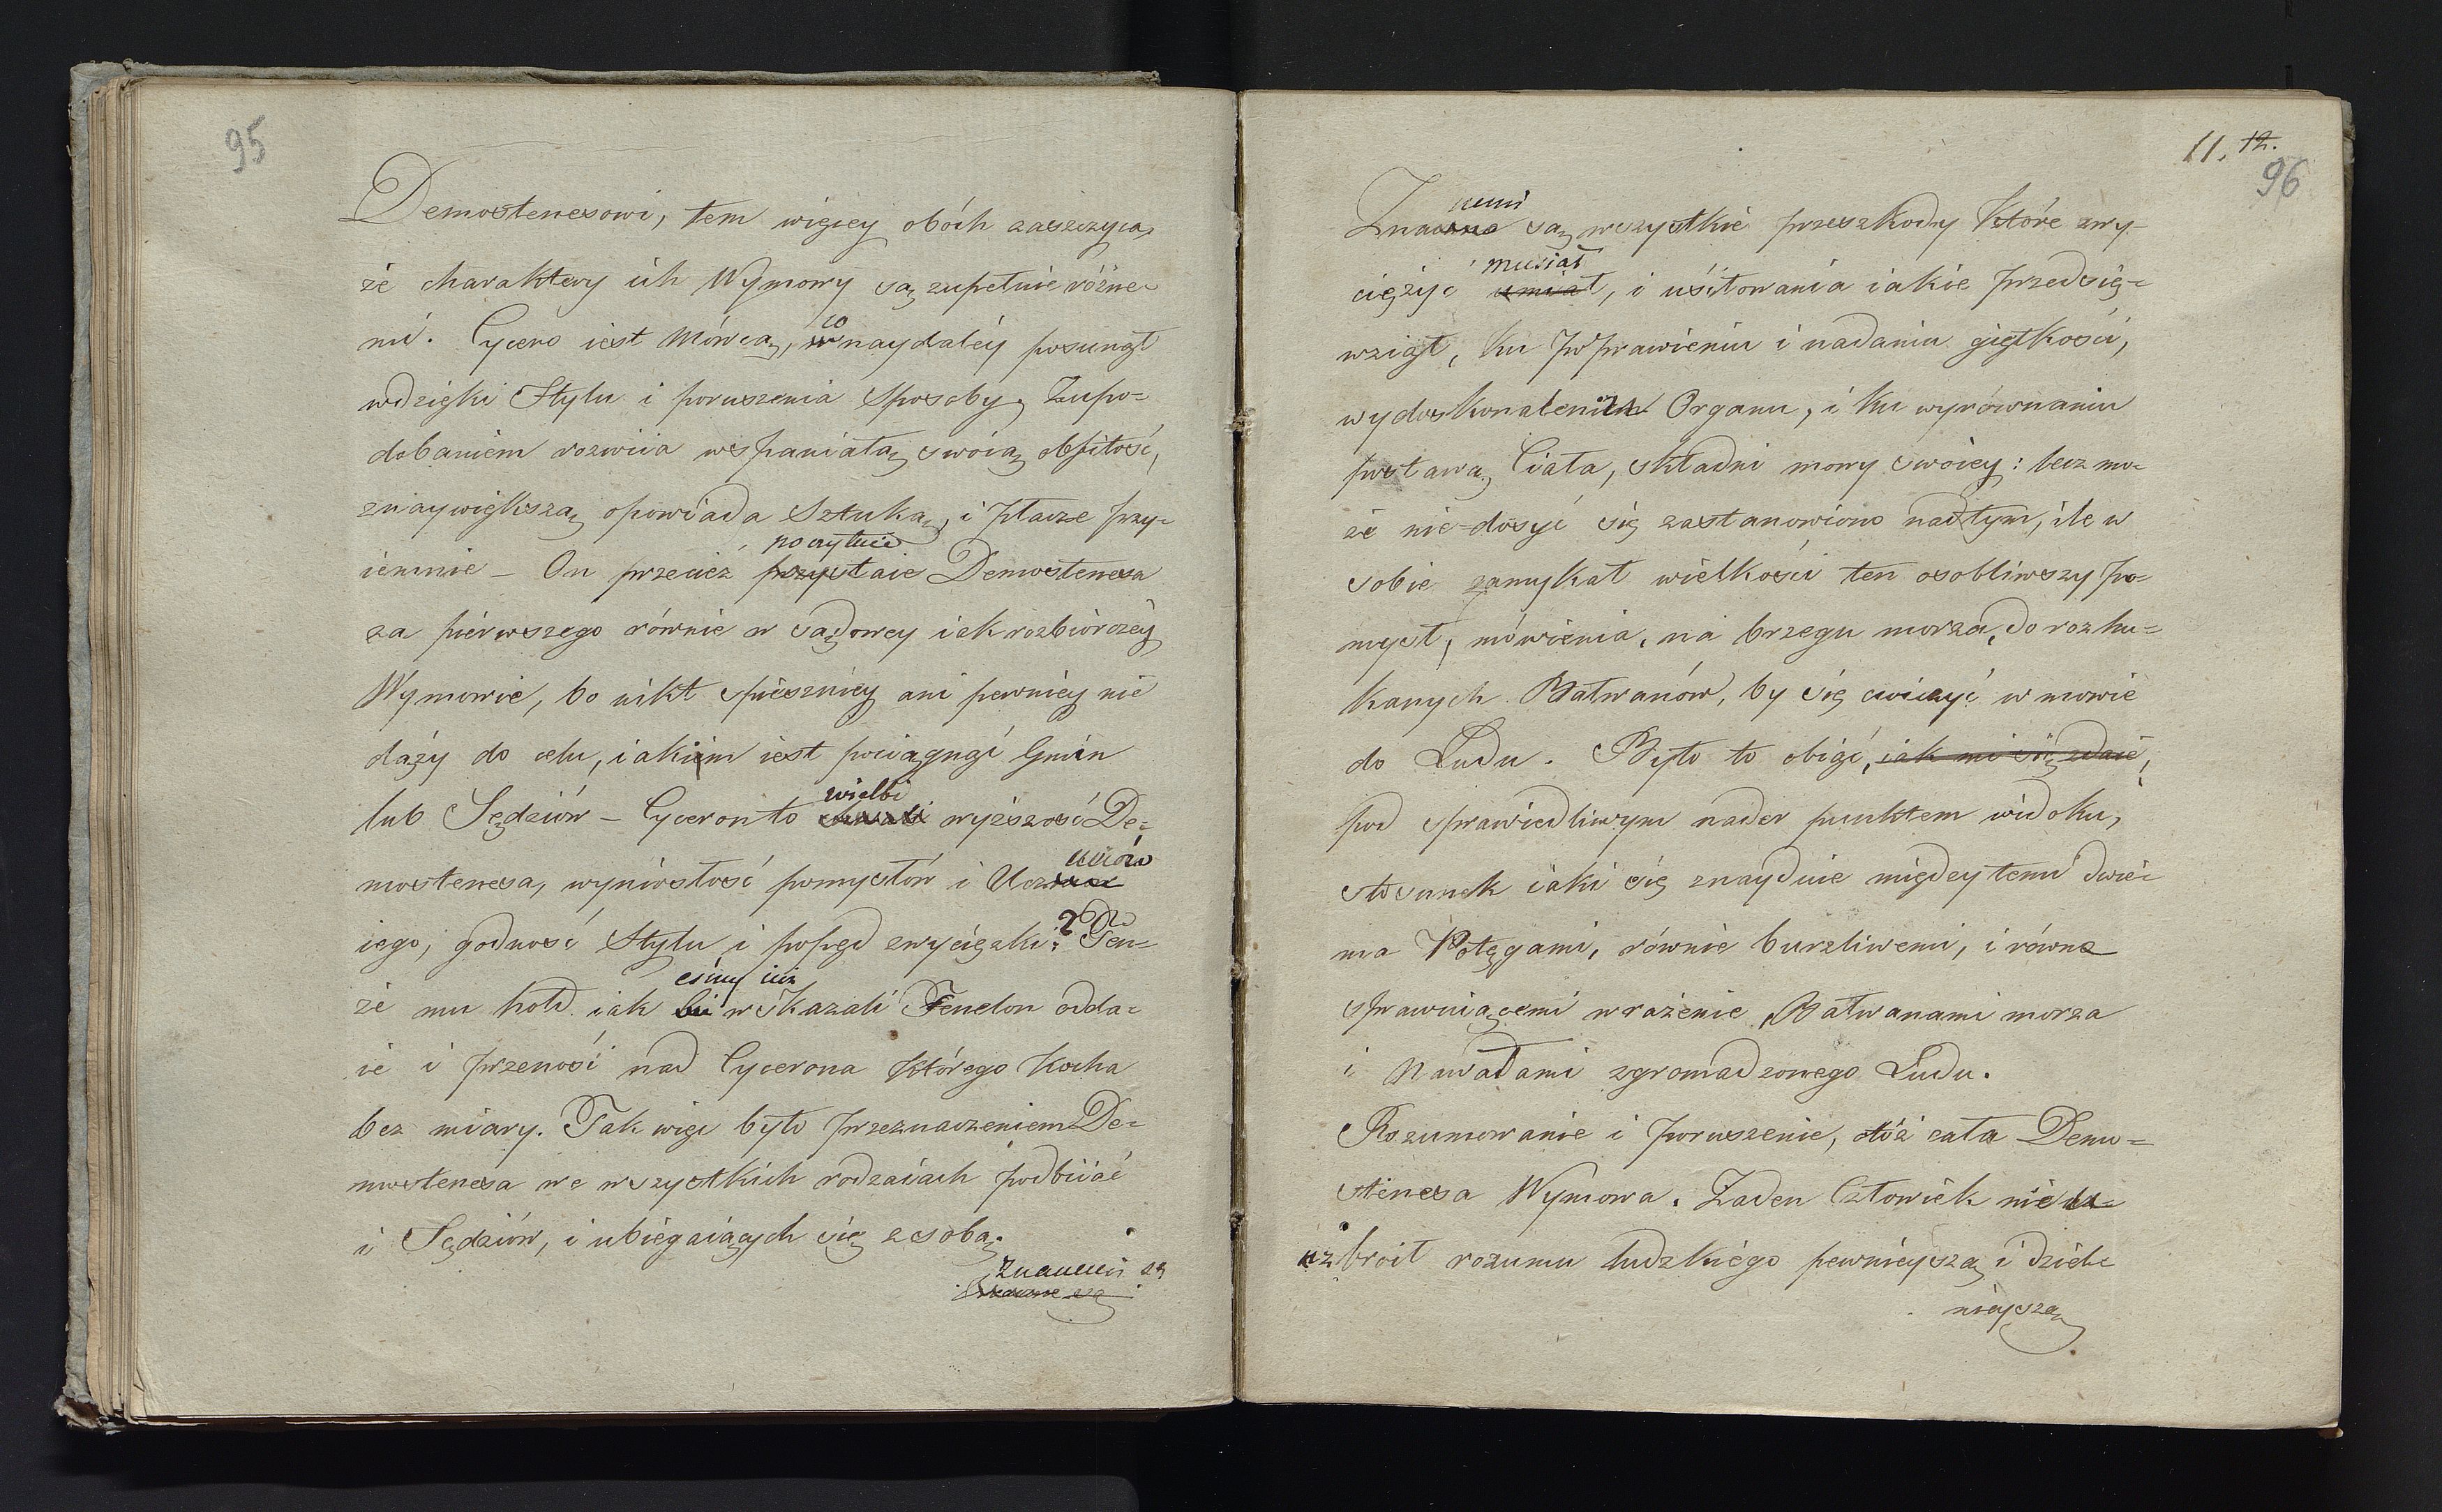 95
Demostenesowi, tem więcey obóch zaszczyca,
że charaktery ich Wymowy są zupełnie różne-
mi. Cycero iest Mówcą, co naydaléy posunął
wdzięki Stylu i poruszenia Sposoby. Z upo-
dobaniem rozwiia wspaniałą swoią obfitość,
z naywiększą opowiada Sztuką, i płacze przy-
iemnie – On przecież poczytuie
przystaie Demostenesa
za pierwszego równie w sądowey iak rozbiorczéy
Wymowie, bo nikt spieszniey ani pewniey nie
dąży do celu, iakim iest pociągnąć Gmin
lub Sędziów – Cyceron to wielbi
chwali wyższość De-
mostenesa, wyniosłość pomysłów i Uczuciów
iego, godność Stylu i popęd zwycięzki? Ten-
że mu hołd iak eśmy iuż
wskazali Fenelon odda-
ie i przenosi nad Cycerona którego kocha
bez miary. Tak więc było przeznaczeniem De-
mostenesa we wszystkich rodzaiach podbiiać
i Sędziów, i ubiegaiących się z sobą.
Znanemi są
Znane są
11. 12.
96
Znanemi są wszystkie przeszkody które zwy-
ciężyć musiał
umiał, i usiłowania iakie przedsię-
wziął, ku poprawieniu i nadaniu giętkości,
wydoskonaleniu Organu, i ku wyrównaniu
postawą Ciała, składni mowy swoiey: lecz mo-
że nie-dosyć się zastanowiono nad tym, ile w
sobie zamykał wielkości ten osobliwszy po-
mysł, mówienia, na brzegu morza, do rozhu-
kanych Bałwanów, by się ćwiczyć w mowie
do Ludu. Było to obiąć, iak mi się zdaie,
pod sprawiedliwym nader punktem widoku,
stosunek iaki się znayduie między temi dwie-
ma Potęgami, równie burzliwemi, i równe
sprawuiącemi wrażenie, Bałwanami morza
i Nawałami zgromadzonego Ludu.
Rozumowanie i poruszenie, otóż cała Demo-
stenesa Wymowa. Żaden Człowiek nie u-
uzbroił rozumu ludzkiego pewnieyszą i dziel-
nieyszą